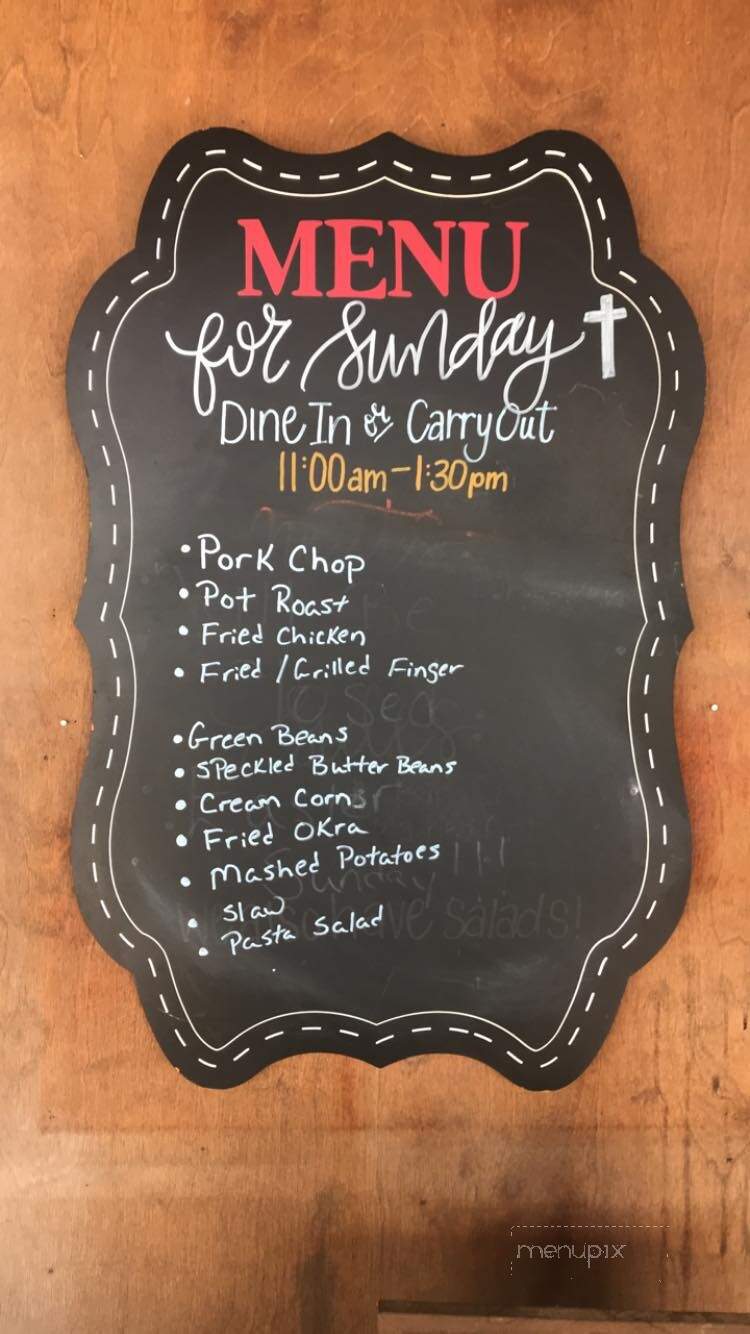 MENU
for Sunday
Dine In or Carry Out
11:00am-1:30pm
• Pork Chop
• Pot Roast
• Fried Chicken
• Fried / Grilled Finger
• Green Beans
• Speckled Butter Beans
• Cream Corn
• Fried Okra
• Mashed Potatoes
• Slaw
• Pasta Salad
Sunday
have salads!
menupix